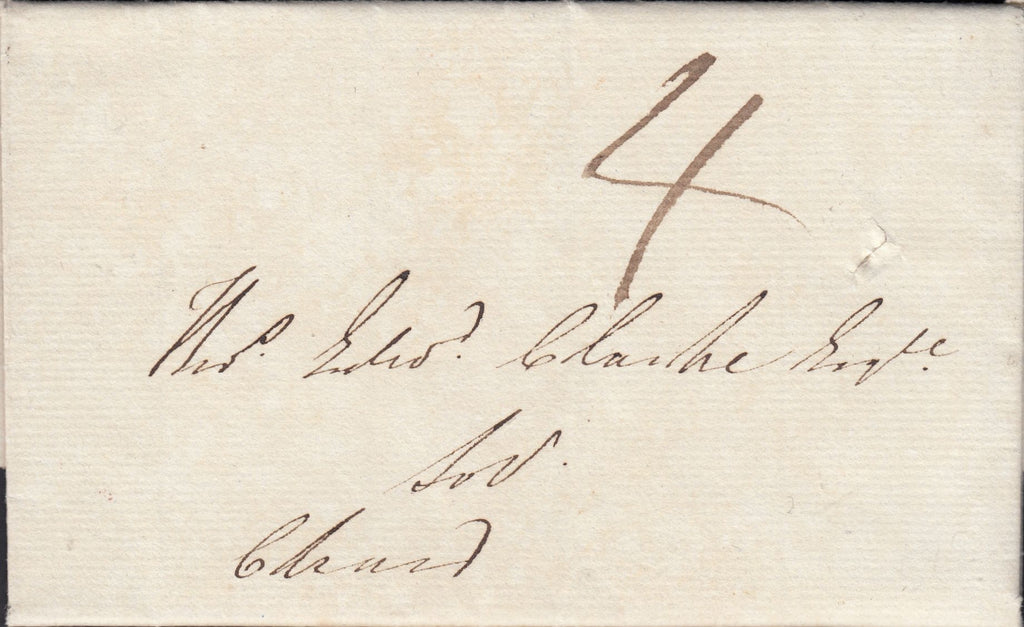 4
Thos. Edwd. Clarke Esqre.
Sol.
Chard